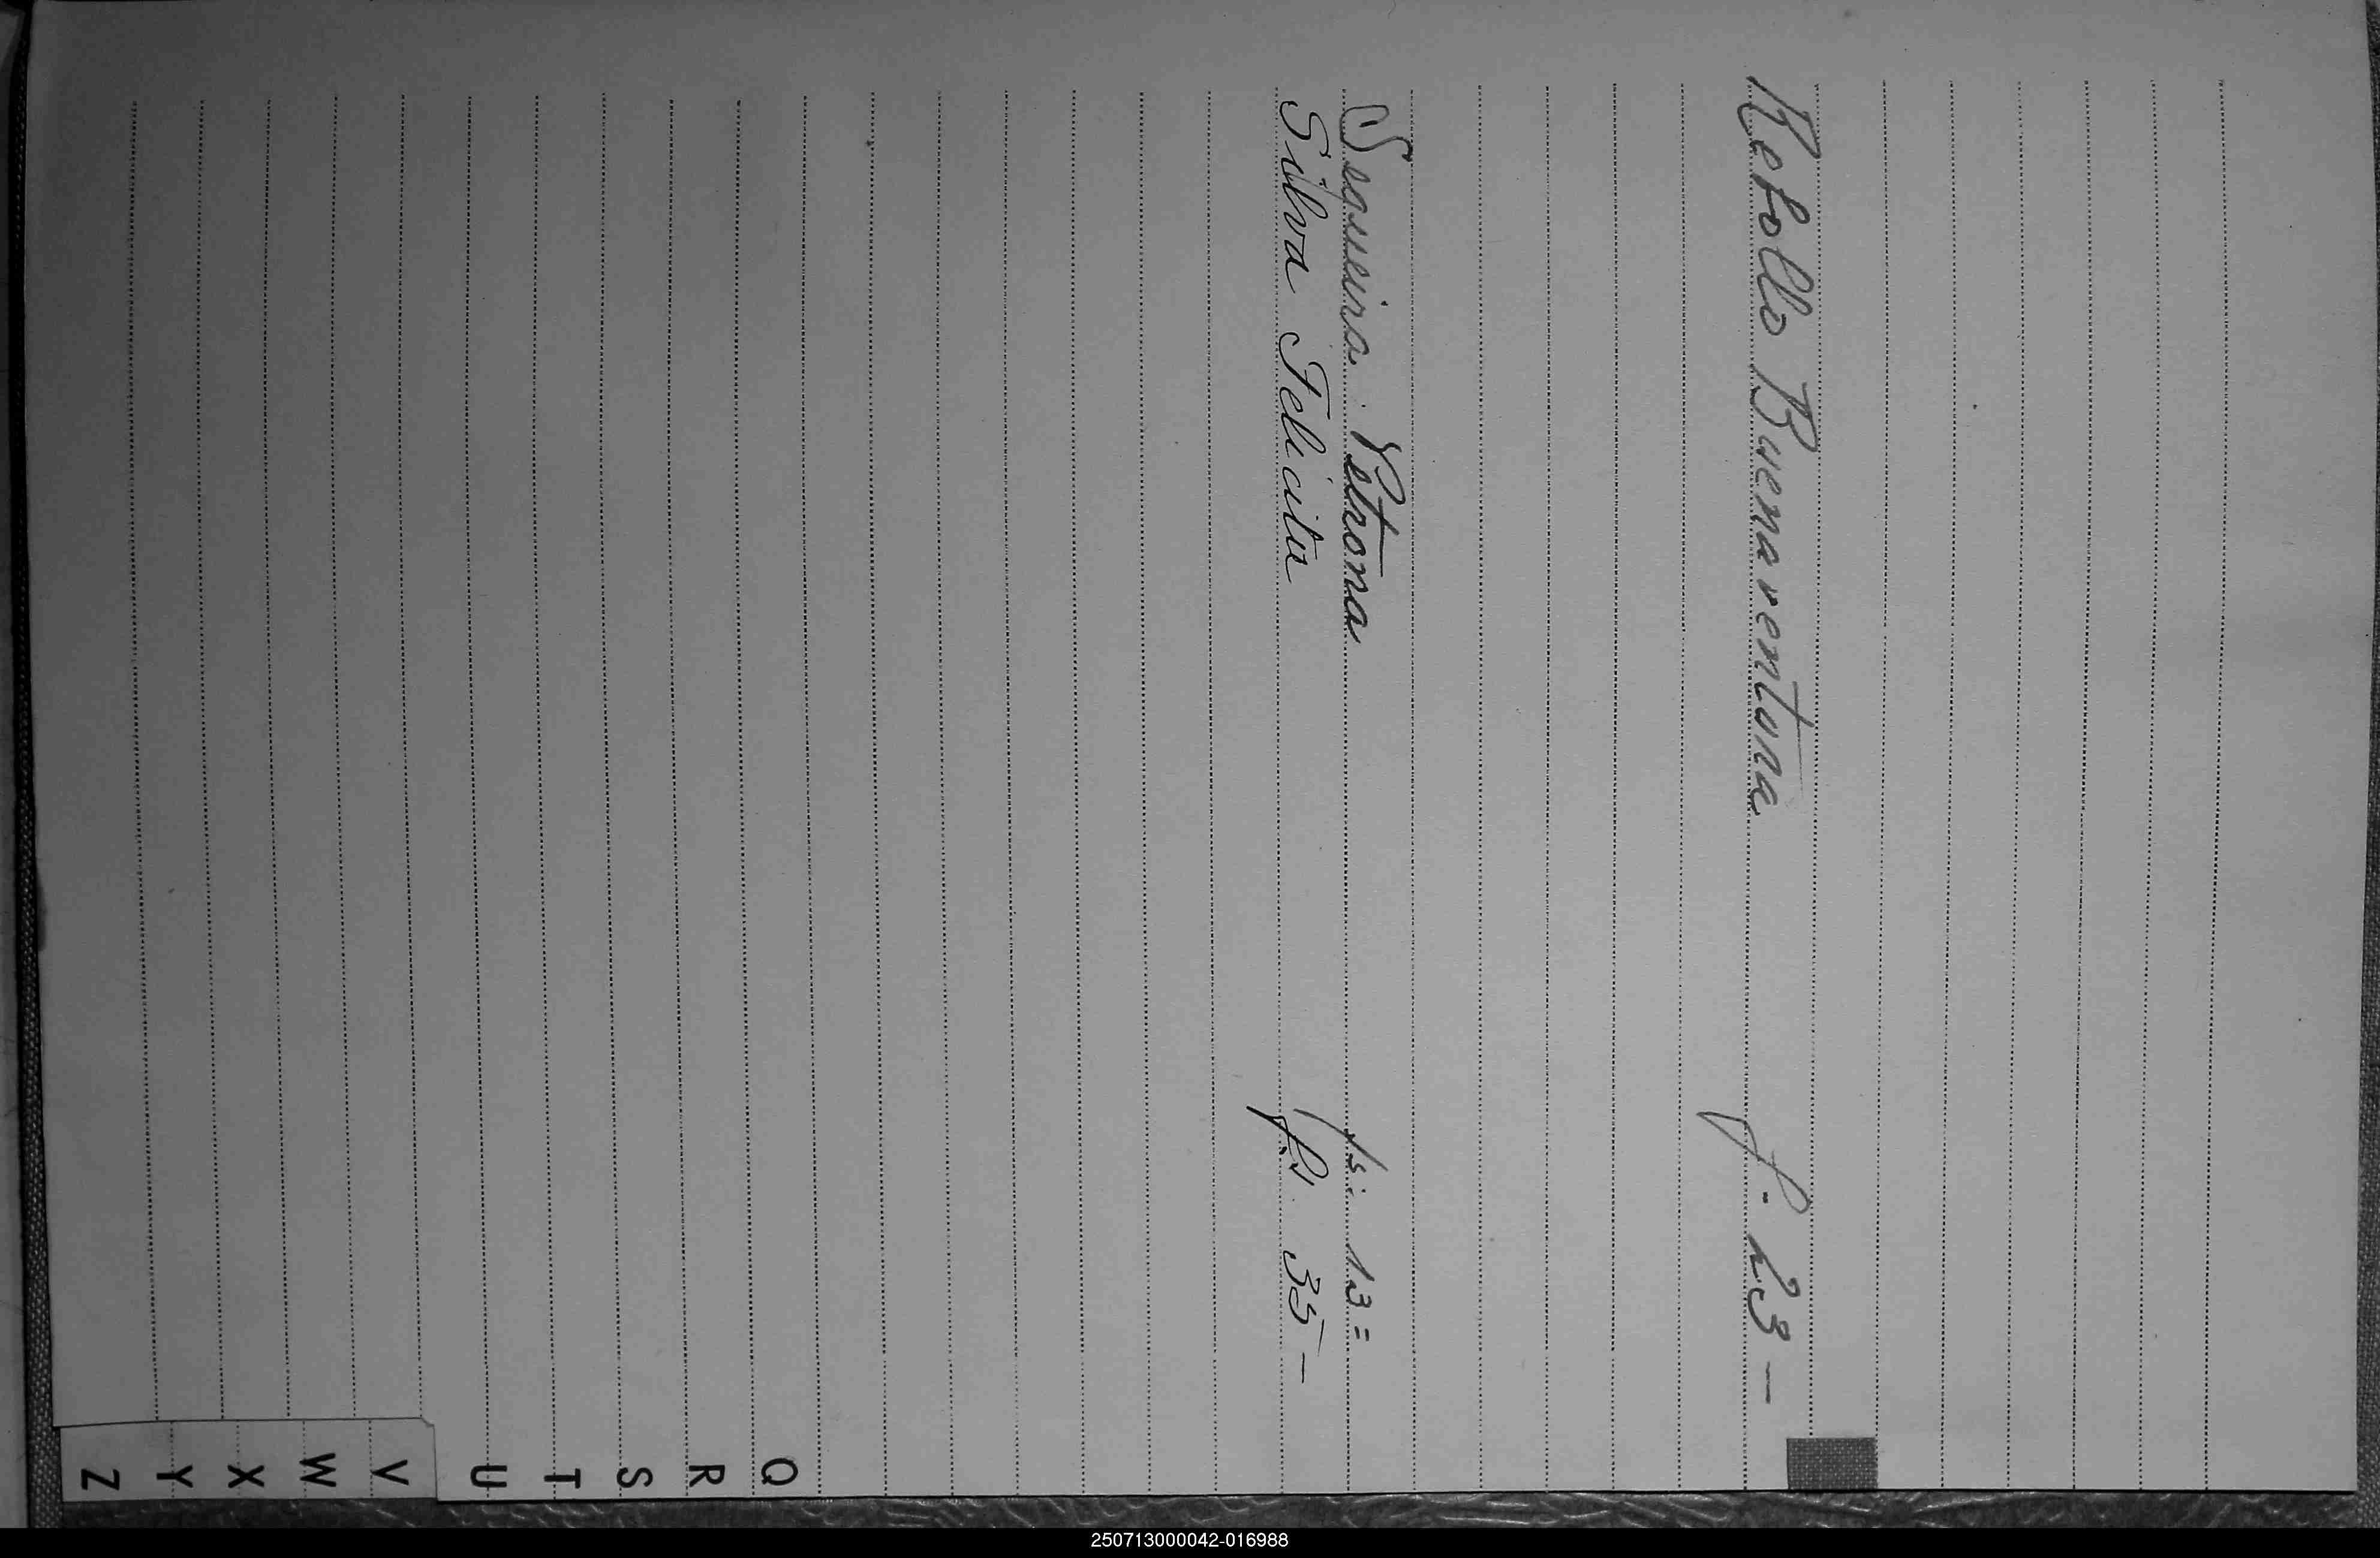 Rebollo Buenaventura f. 23 -
Segueira Petrona fs: 13 =
Silva Felicita fs. 35 -
Q
R
S
T
U
V
W
X
Y
Z
250713000042-016988